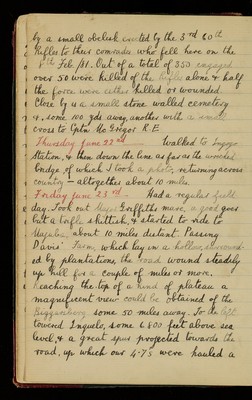 by a small obelisk erected by the 3rd 60th
Rifles to their comrades who fell here on the
8th Feb. /81. Out of a total of 350 engaged
over 50 were killed of the Rifles alone & half
the force were either killed or wounded.
Close by is a small stone walled cemetery
&, some 100 yds away, another with a small
cross to Cptn McGregor R.E.
Thursday June 22nd Walked to Ingogo
Station, & then down the line as far as the wrecked
bridge of which I took a photo, returning across
country – altogether about 10 miles.
Friday June 23rd Had a regular field
day. Took out Major Griffiths mare, a good goer
but a trifle skittish, & started to ride to
about 10 miles distant. Passing
Davis' Farm, which lay in a hollow, surround-
ed by plantations, the road wound steadily
up hill for a couple of miles or more.
Reaching the top of a kind of plateau a
magnificent view could be obtained of the
Biggarsberg some 50 miles away. To the left
towered Inguelo, some 6800 feet above sea
level, & a great spur projected towards the
road, up which our 4.7s were hauled a